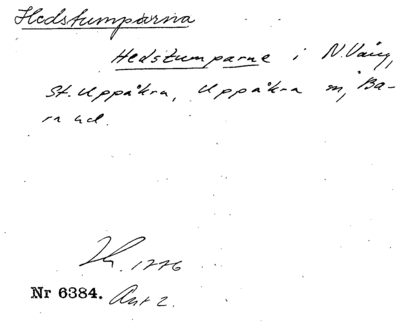 Hedstumparna
Hedstumparne i N. Vång,
St. Uppåkra, Uppåkra sn, Ba-
ra hd.
1776
Nr 6384. Ant 2.